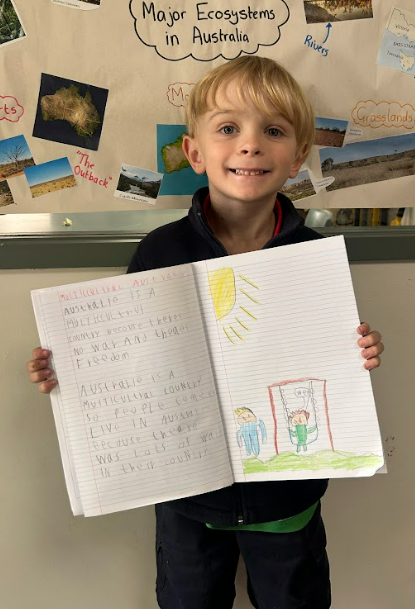 Major Ecosystems
in Australia
Rivers
Grasslands
"The
Outback"
Multicultral Australia
Australia is a
Multicultrul
country because there
no war and there
Freedom
Australia is a
Multicultral country
so people come
Live in Austral
because there
was Lots of wa
in there country